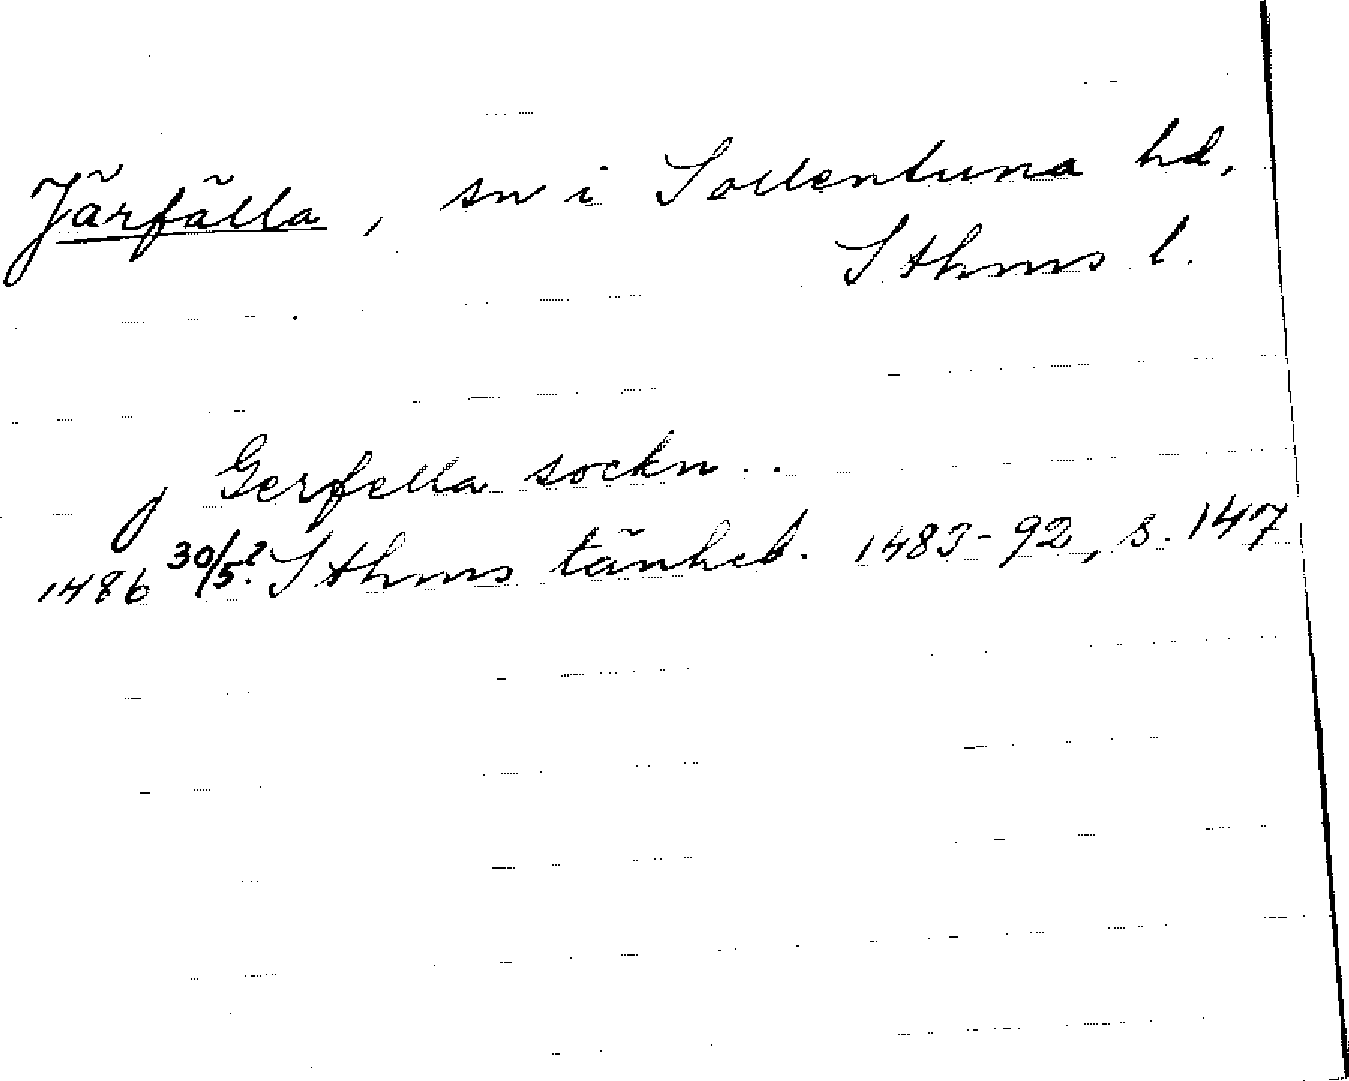 Järfälla, sn i Sollentuna hd,
Sthms l.
j Gerfella sockn..
1486 30/5? Sthms tänkeb. 1483-92, s. 147